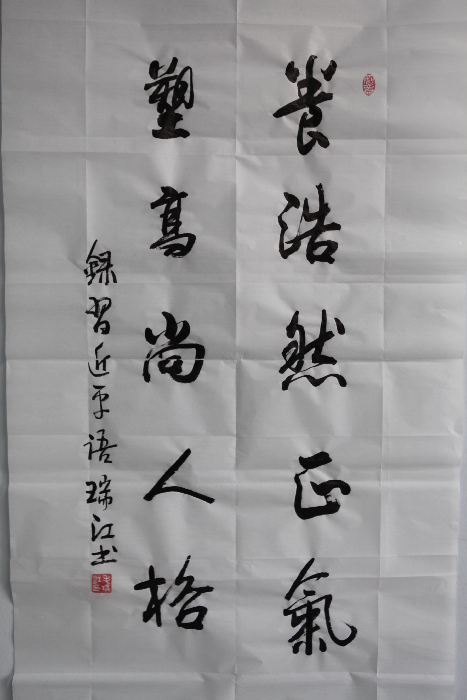 養浩然正氣
塑高尚人格
録習近平語瑞江书